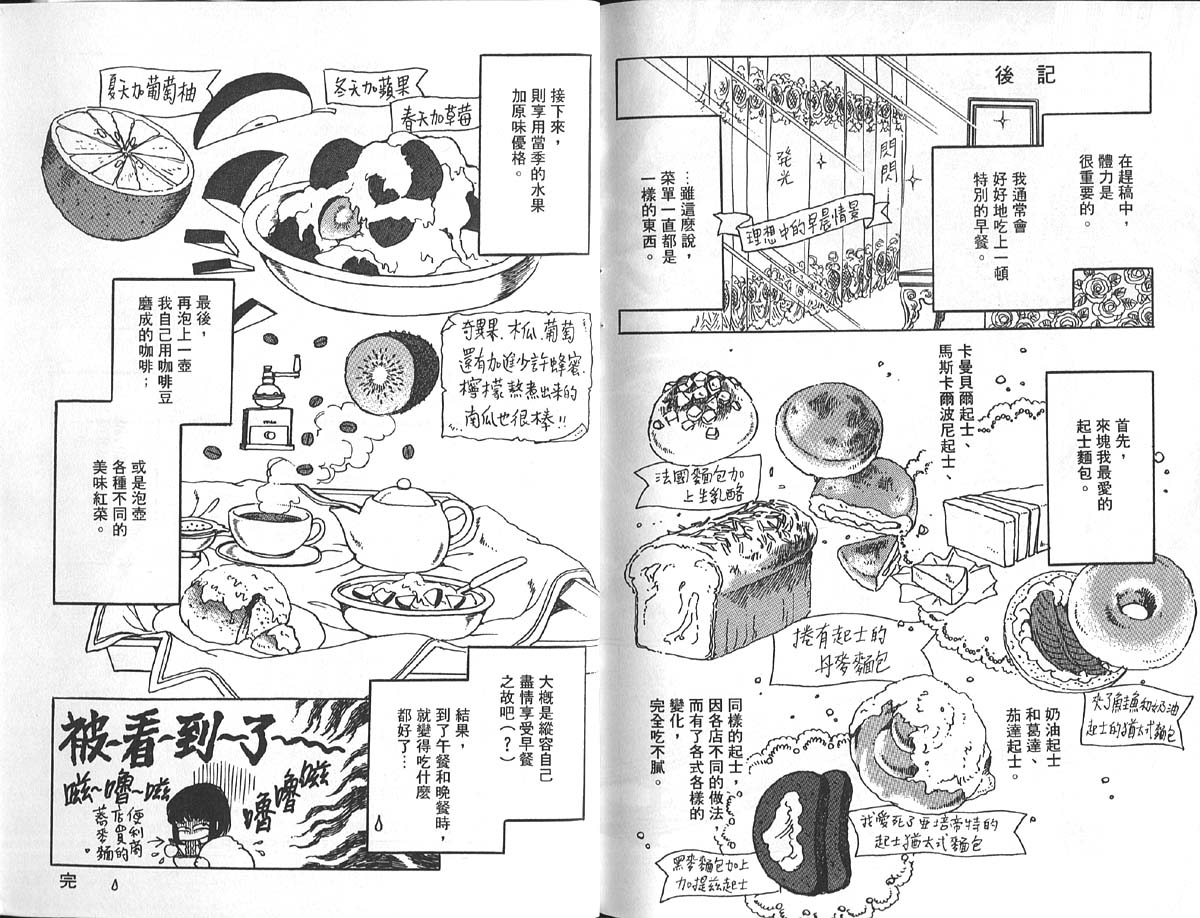 後記
在趕稿中，
體力是
很重要的。
我通常會
好好地吃上一頓
特別的早餐。
閃閃
発光
理想中的早晨情景
…雖這麼說，
菜單一直都是
一樣的東西。
首先，
來塊我最愛的
起士麵包。
卡曼貝爾起士、
馬斯卡爾波尼起士、
法國麵包加
上生乳酪
捲有起士的
丹麥麵包
夾了鮭魚和奶油
起士的猶太式麵包
奶油起士
和葛達、
茄達起士。
同樣的起士，
因各店不同的做法，
而有了各式各樣的
變化，
完全吃不膩。
我愛死了亞培帝特的
起士猶太式麵包
黑麥麵包加上
加提茲起士
接下來，
則享用當季的水果
加原味優格。
春天加草莓
冬天加蘋果
夏天加葡萄柚
奇異果、木瓜、葡萄
還有加進少許蜂蜜、
檸檬熬煮出來的
南瓜也很棒!!
最後，
再泡上一壺
我自己用咖啡豆
磨成的咖啡；
或是泡壺
各種不同的
美味紅菜。
大概是縱容自己
盡情享受早餐
之故吧（？）
結果，
到了午餐和晚餐時，
就變得吃什麼
都好了…
被~看~到~了~~~
滋
嚕
嚕
滋~嚕~滋
便利商
店買的
蕎麥麵。
完